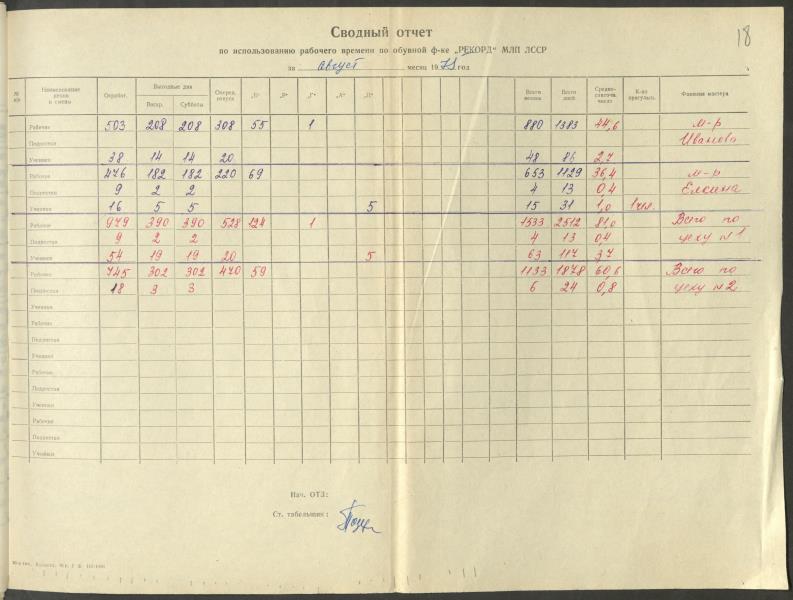 18
Сводный отчет
по использованию рабочего времени по обувной ф-ке „РЕКОРД" МЛП ЛССР
за август месяц 1971 год
№ п/п Наименование цехов и смены Отработ. Выходные дни Очеред. отпуск „Б" „Р" „Г" „А" „П" Всего неявок Всего дней Средне-списочн. число К-во прогульщ. Фамилия мастера
Воскр. Субботы
Рабочие 503 208 208 308 55 1 880 1383 44,6 м-р
Подростки Иванова
Ученики 38 14 14 20 48 86 2,7
Рабочие 476 182 182 220 69 653 1129 36,4 м-р
Подростки 9 2 2 4 13 0,4 Елкина
Ученики 16 5 5 5 15 31 1,0 1 чел.
Рабочие 979 390 390 528 124 1 1533 2512 81,0 Всего по
Подростки 9 2 2 4 13 0,4 цеху №1
Ученики 54 19 19 20 5 63 117 3,7
Рабочие 745 302 302 470 59 1133 1878 60,6 Всего по
Подростки 18 3 3 6 24 0,8 цеху №2
Ученики
Рабочие
Подростки
Ученики
Рабочие
Подростки
Ученики
Рабочие
Подростки
Ученики
Нач. ОТЗ:
Ст. табельщик: